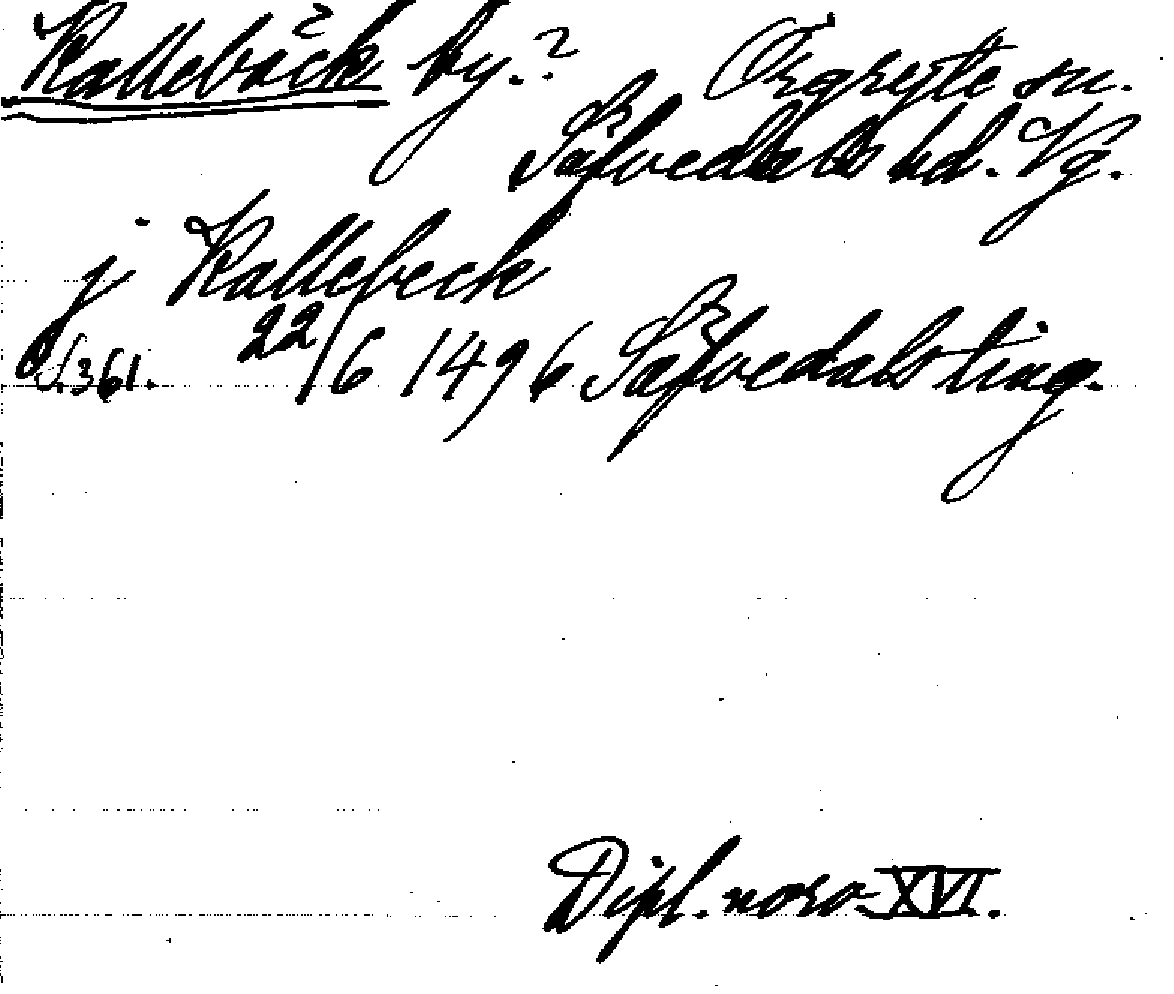 Kallebäck by.? Örgryte sn.
Säfvedals hd. Vg.
j Kallebeck
S. 361. 22/6 1496 Säfvedals ting.
Dipl. norv. XVI.